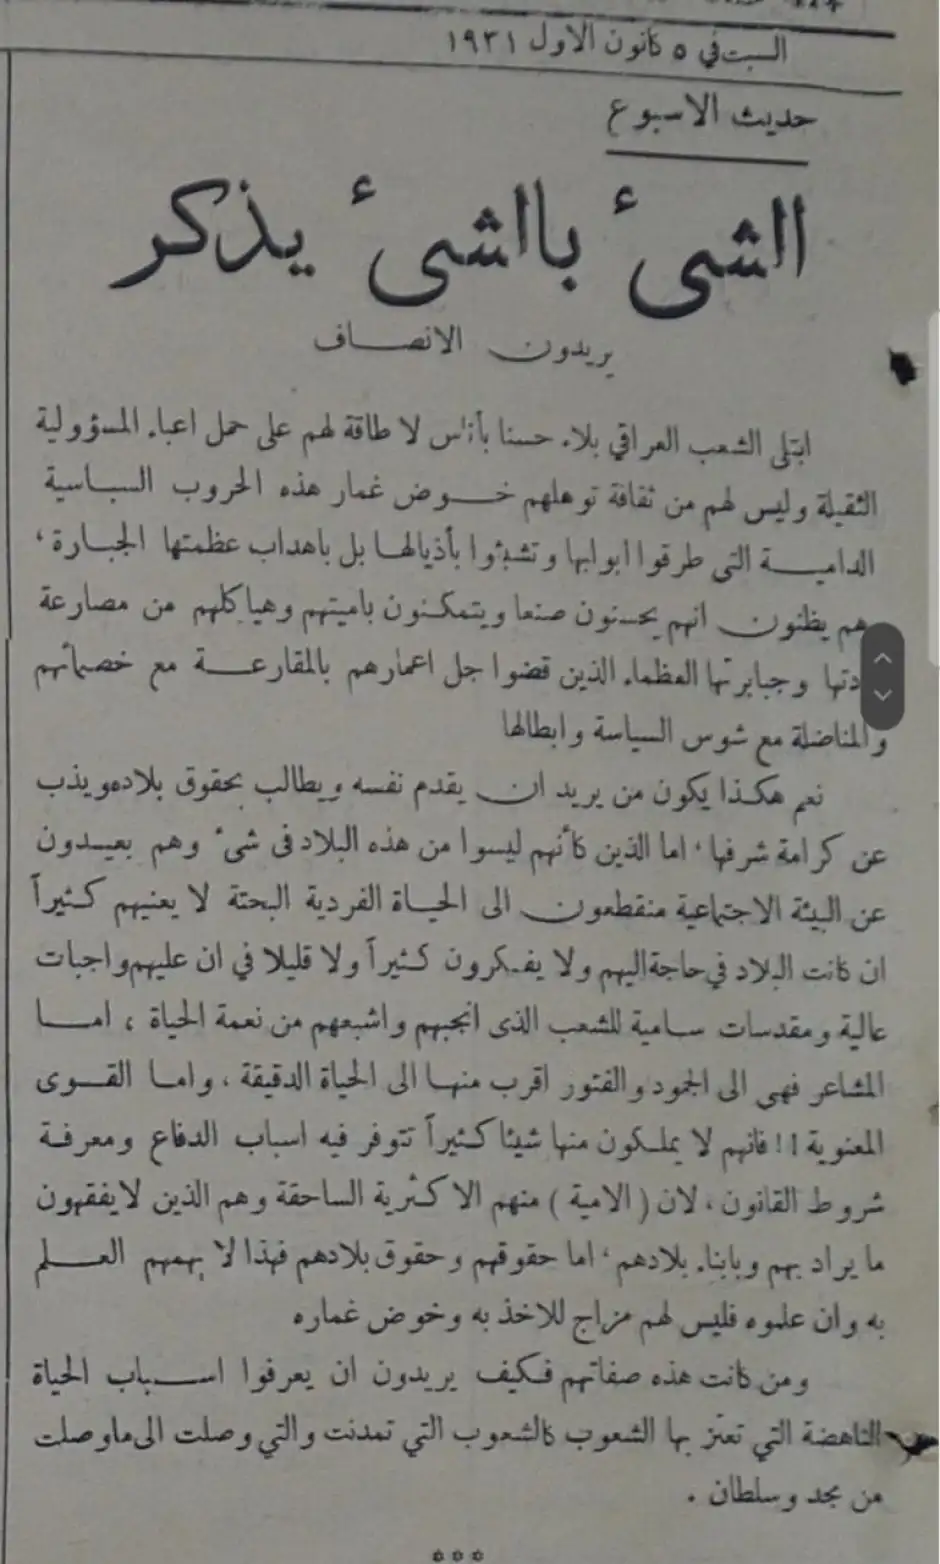 السبت في ٥ كانون الاول ١٩٣١
حديث الاسبوع
الشيء بالشيء يذكر
يريدون الانصاف
ابتلى الشعب العراقي بلاء حسنا بأناس لا طاقة لهم على حمل اعباء المسؤولية
الثقيلة وليس لهم من ثقافة توهلهم خوض غمار هذه الحروب السياسية
الدامية التي طرقوا ابوابها وتشبثوا بأذيالها بل باهداب عظمتها الجبارة،
هم يظنون انهم يحسنون صنعا ويتمكنون باميتهم وهياكلهم من مصارعة
دتها وجبابرتها العظماء الذين قضوا جل اعمارهم بالمقارعة مع خصمائهم
والمناضلة مع شوس السياسة وابطالها
نعم هكذا يكون من يريد ان يقدم نفسه ويطالب بحقوق بلاده ويذب
عن كرامة شرفها، اما الذين كأنهم ليسوا من هذه البلاد في شيء وهم بعيدون
عن البيئة الاجتماعية منقطعون الى الحياة الفردية البحتة لا يعنيهم كثيراً
ان كانت البلاد في حاجة اليهم ولا يفكرون كثيراً ولا قليلا في ان عليهم واجبات
عالية ومقدسات سامية للشعب الذي انجبهم واشبعهم من نعمة الحياة، اما
المشاعر فهي الى الجمود والفتور اقرب منها الى الحياة الدقيقة، واما القوى
المعنوية !! فانهم لا يملكون منها شيئا كثيراً تتوفر فيه اسباب الدفاع ومعرفة
شروط القانون، لان (الامية) منهم الاكثرية الساحقة وهم الذين لا يفقهون
ما يراد بهم وبابناء بلادهم، اما حقوقهم وحقوق بلادهم فهذا لا يهمهم العلم
به وان علموه فليس لهم مزاج للاخذ به وخوض غماره
ومن كانت هذه صفاتهم فكيف يريدون ان يعرفوا اسباب الحياة
الناهضة التي تعتز بها الشعوب كالشعوب التي تمدنت والتي وصلت الى ما وصلت
من مجد وسلطان.
***